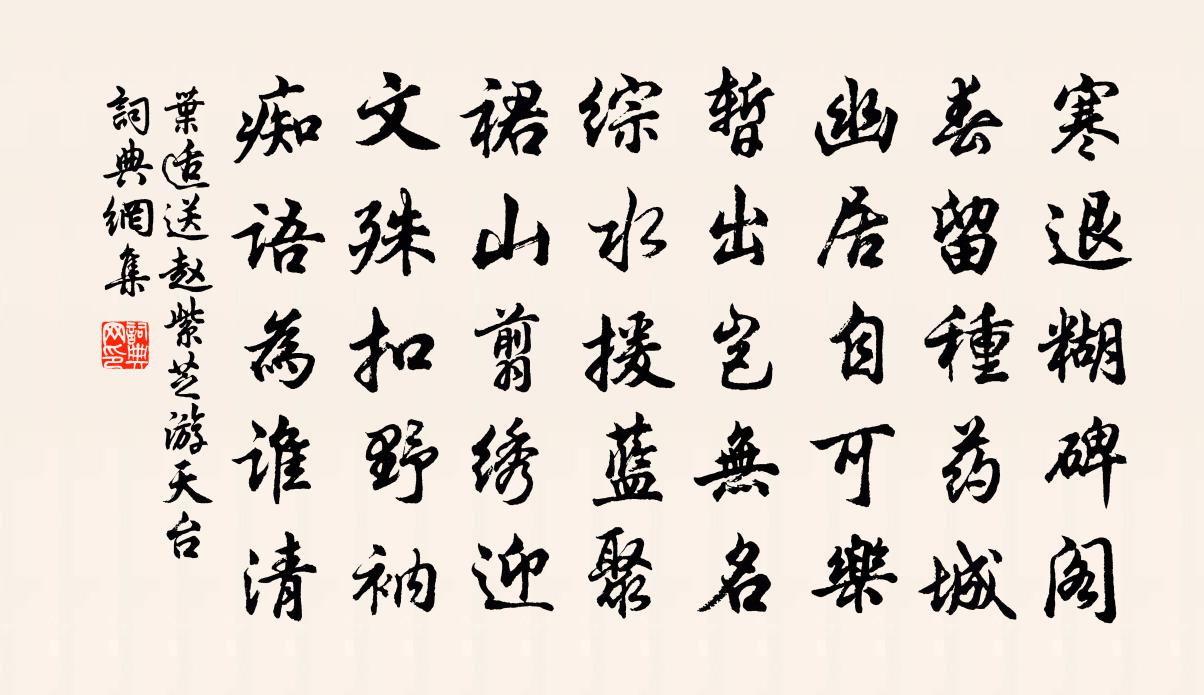 寒退糊碑阁
春留種药城
幽居自可樂
暫出岂無名
綜水援藍聚
裙山剪绣迎
文殊扣野衲
痴語為誰清
葉适送赵紫芝游天台
詞典網集
詞典网印